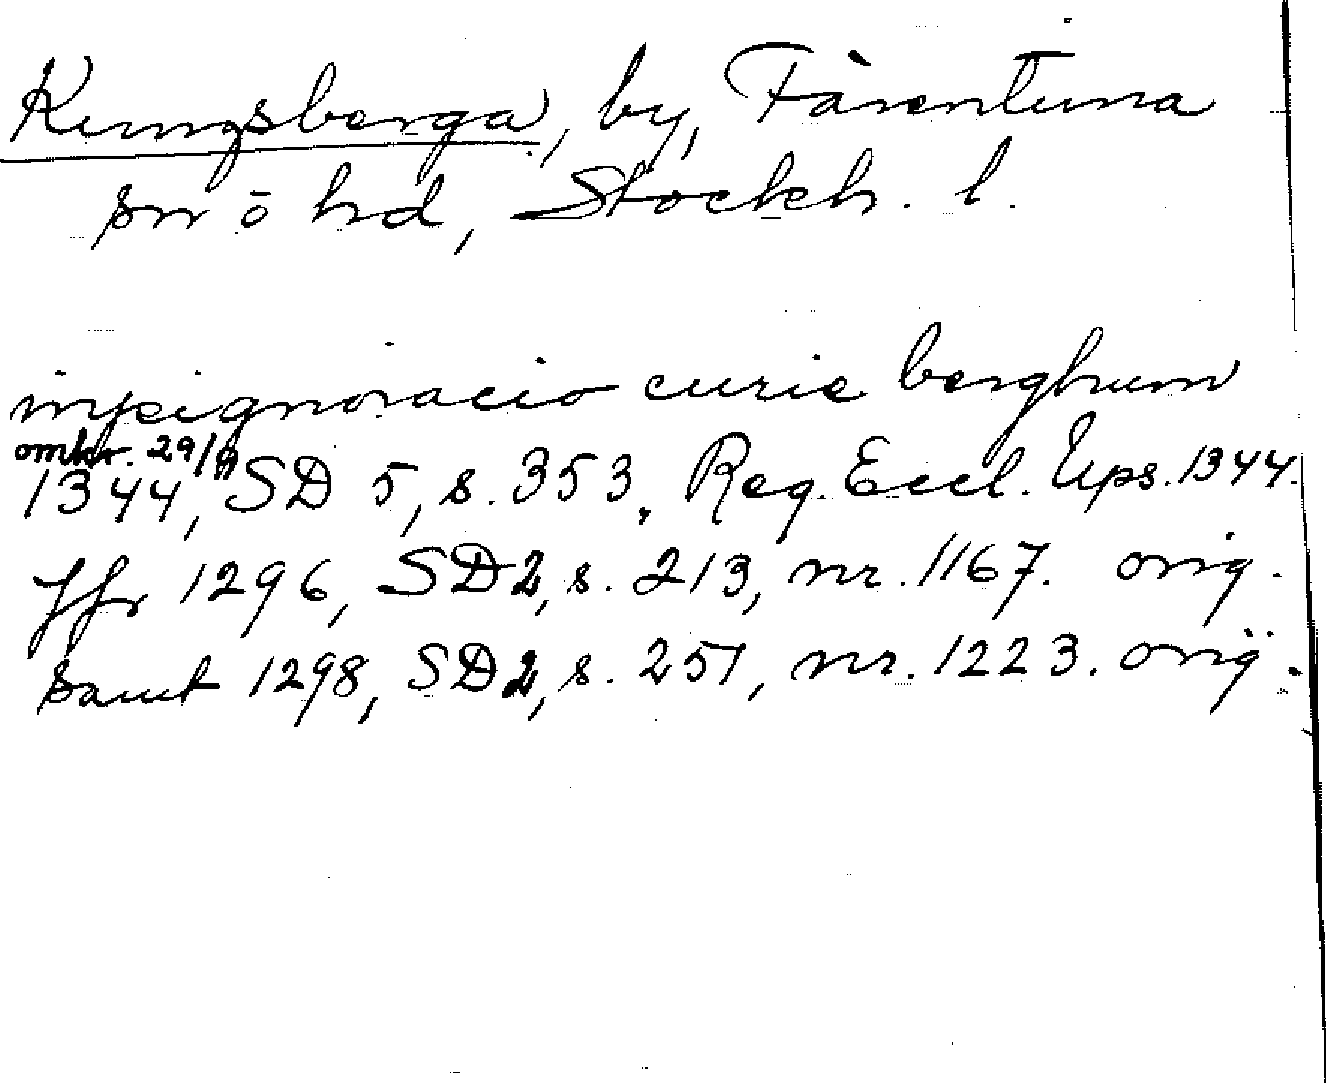 Kungsberga, by, Färentuna
sn ō hd, Stockh. l.
inpignoracio curie berghum
omkr. 29/9
1344, SD 5, s. 353. Reg. Eccl. Ups. 1344.
Jfr 1296, SD2, s. 213, nr. 1167. orig.
samt 1298, SD2, s. 251, nr. 1223. orig.